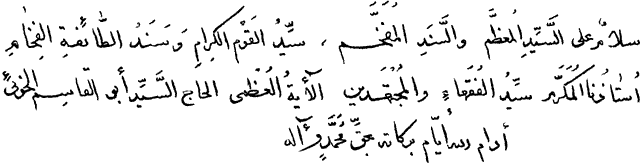 سلامٌ على السَّيِّدِ المُعظَّم والسَّندِ المُفَخَّم ، سيِّدُ القَوْمِ الكِرامِ وَسَنَدُ الطَّائفةِ الفِخَامِ
اُستاذُنا المُكَرَّم سيِّدُ الفُقَهاءِ والمُجْتَهِدين الآيةُ العُظْمى الحاج السَّيِّد أبو القاسم الخوئيُّ
أدام الله أيّام بركاته بحقِّ مُحَمَّدٍ وآله